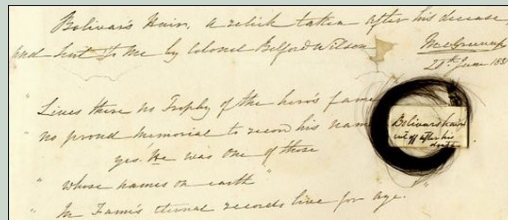 Bolivar's Hair, a relick taken after his decease,
and sent to me by Colonel Belford Wilson
28th June
" Lives there no Trophy of the hero's fame
" no proud memorial to record his name
" yes. He was one of those
" whose names on earth "
" In Fame's eternal records live for aye.
Bolivar's hair
cut off after his
death